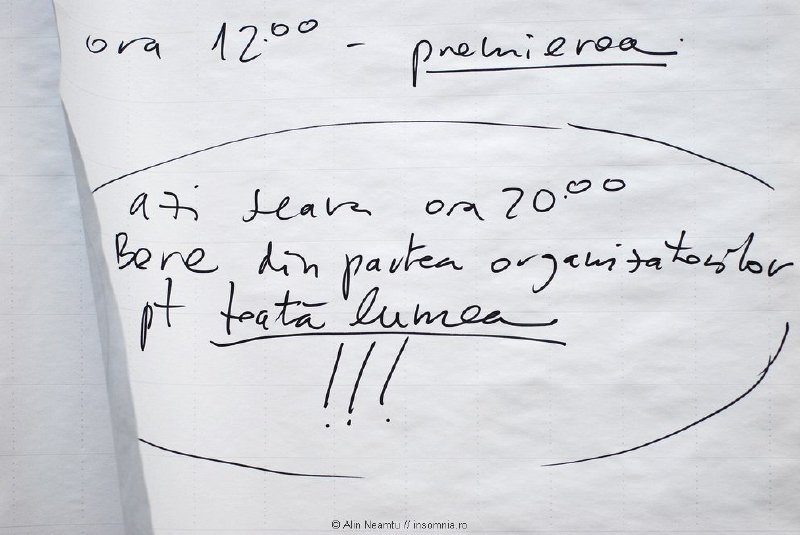 ora 12:00 - premierea.
azi seara ora 20:00
Bere din partea organizatorilor
pt toată lumea
!!!
© Alin Neamtu // insomnia.ro